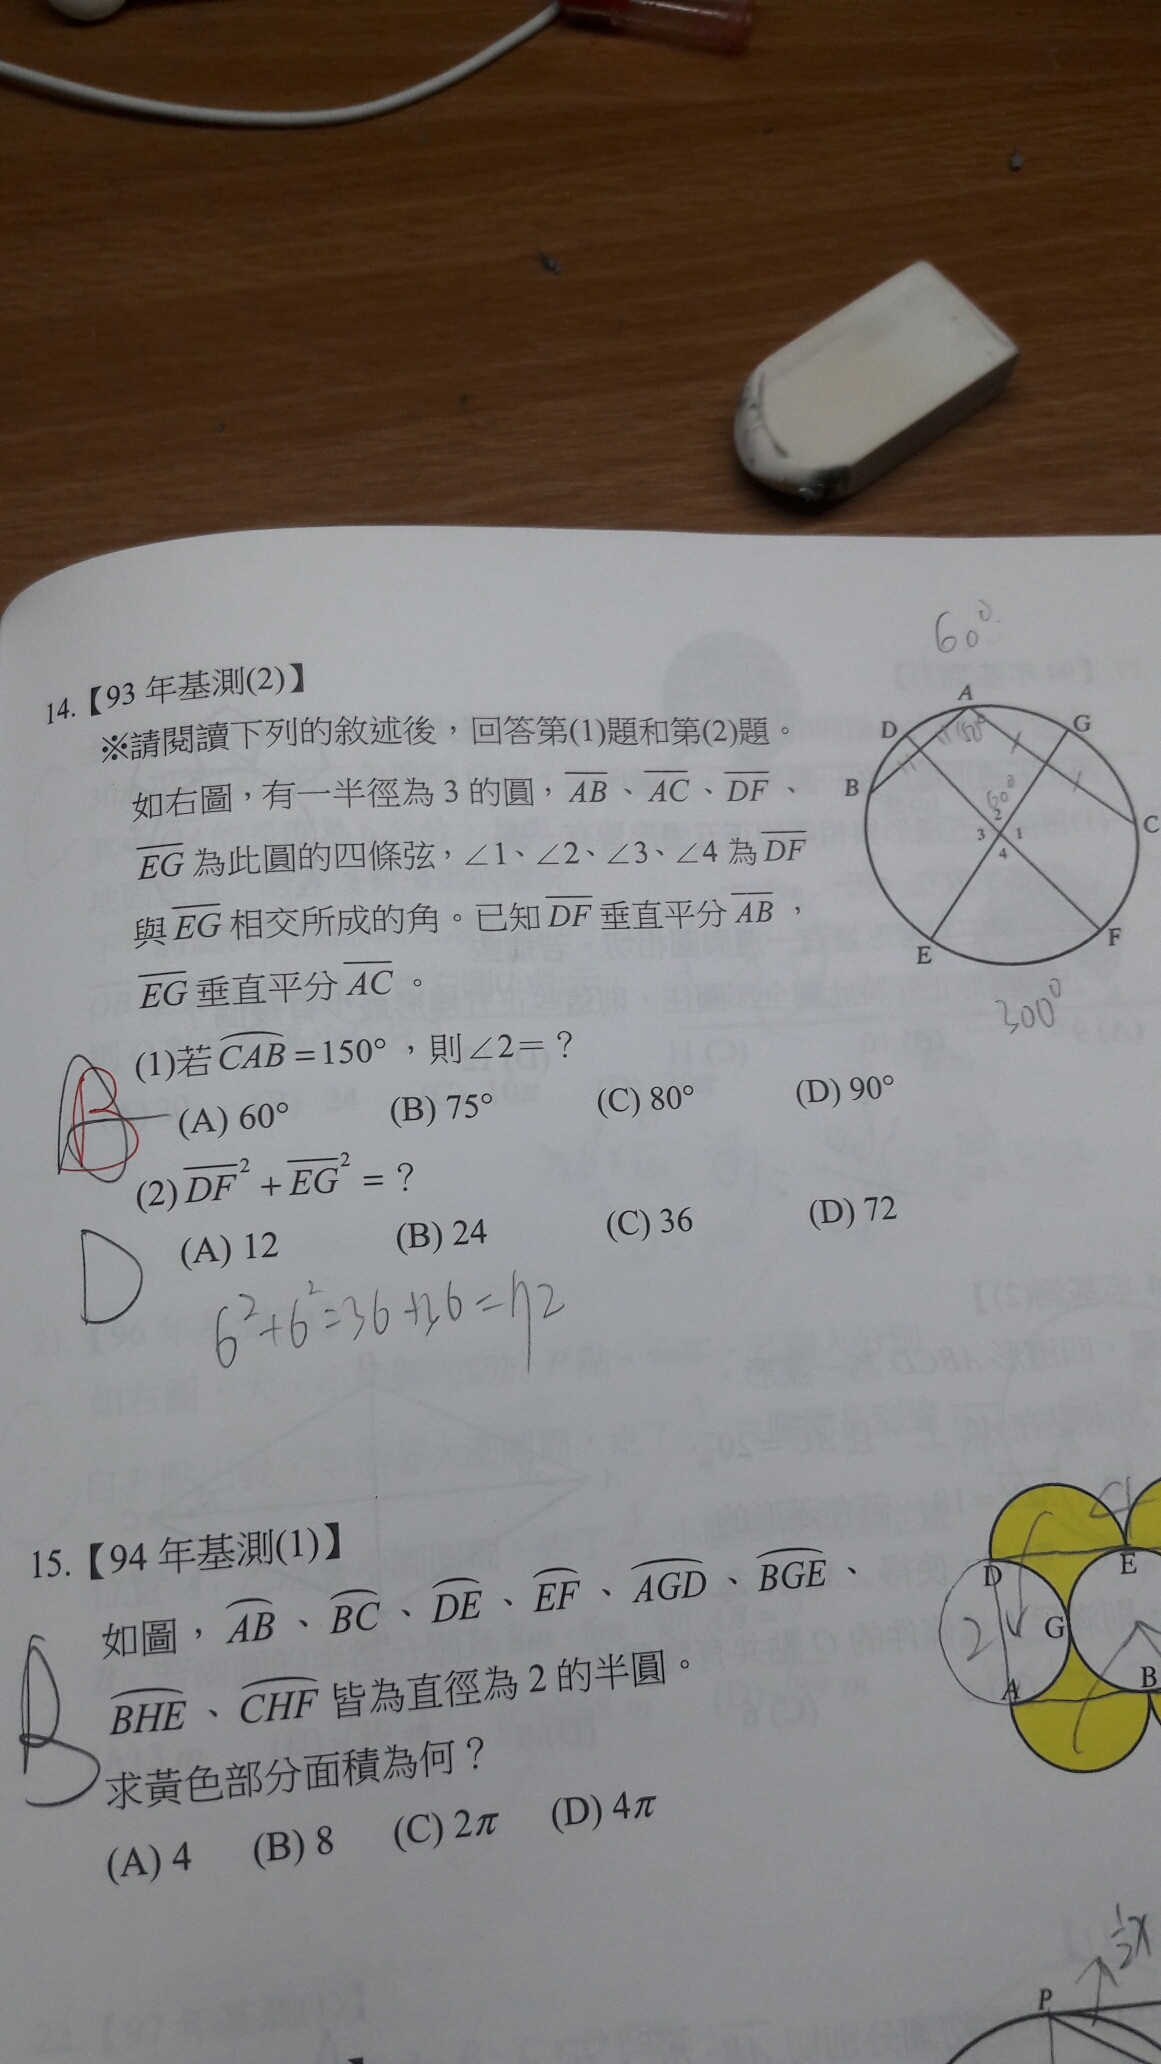 60°
14.【93 年基測(2)】
※請閱讀下列的敘述後，回答第(1)題和第(2)題。
如右圖，有一半徑為 3 的圓，AB、AC、DF、
EG 為此圓的四條弦，∠1、∠2、∠3、∠4 為 DF
與 EG 相交所成的角。已知 DF 垂直平分 AB，
EG 垂直平分 AC。
A
D
G
150°
B
60°
C
2
3 1
4
E
F
300°
(1)若 CAB = 150°，則∠2＝？
B
(A) 60° (B) 75° (C) 80° (D) 90°
(2) DF² + EG² = ？
D
(A) 12 (B) 24 (C) 36 (D) 72
6²+6²=36+36=72
15.【94 年基測(1)】
如圖，AB、BC、DE、EF、AGD、BGE、
BHE、CHF 皆為直徑為 2 的半圓。
B
求黃色部分面積為何？
(A) 4 (B) 8 (C) 2π (D) 4π
D
E
2
G
A
B
½x
P